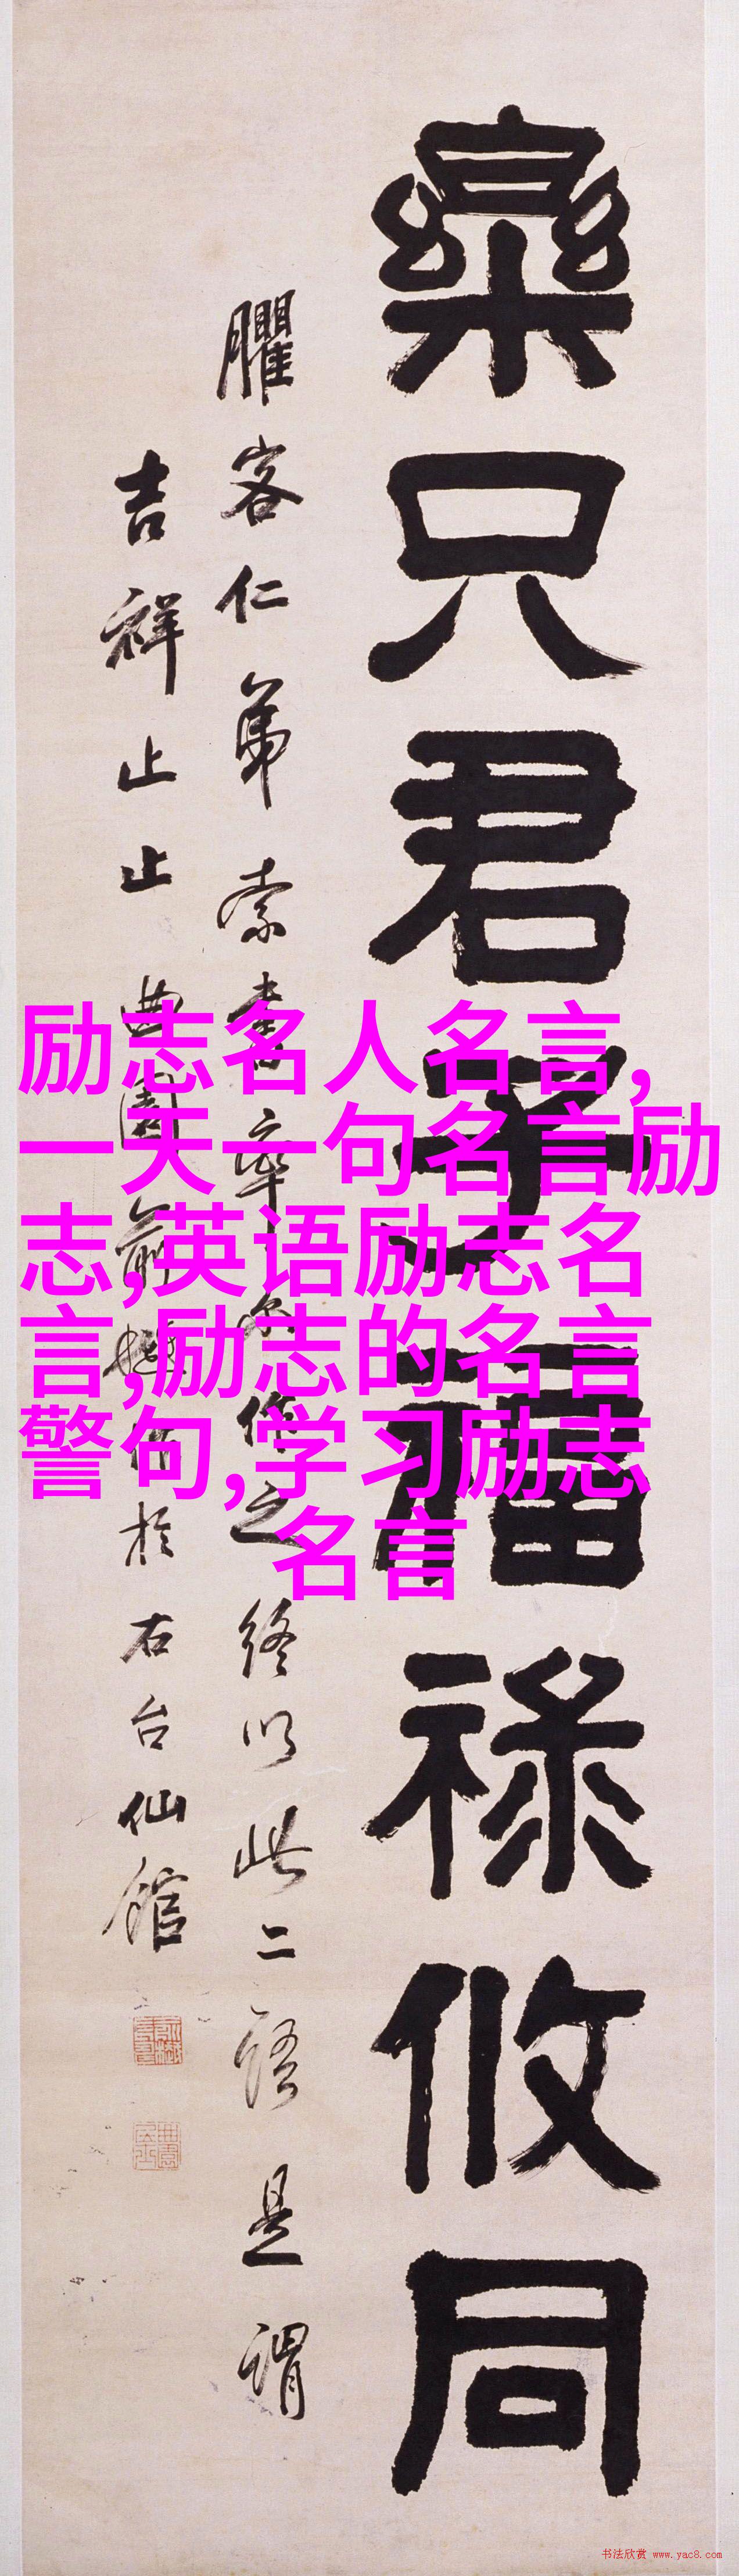 樂只君子福祿攸同
臞客仁弟索書率爾作之終以此二語是謂
吉祥止止曲園俞樾書於右台仙館
励志名人名言,
一天一句名言励
志,英语励志名
言,励志的名言
警句,学习励志
名言
书法欣赏 www.yac8.com